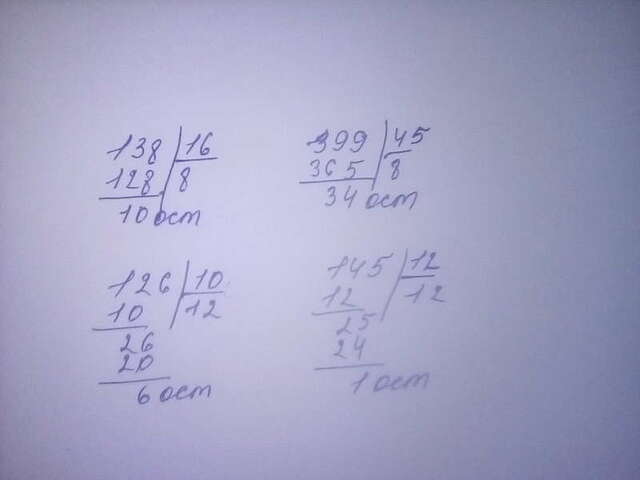 138 16
128 8
10 ост
399 45
365 8
34 ост
126 10
10 12
26
20
6 ост
145 12
12 12
25
24
1 ост